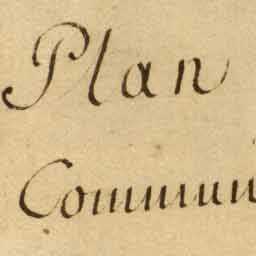 Plan
Commun